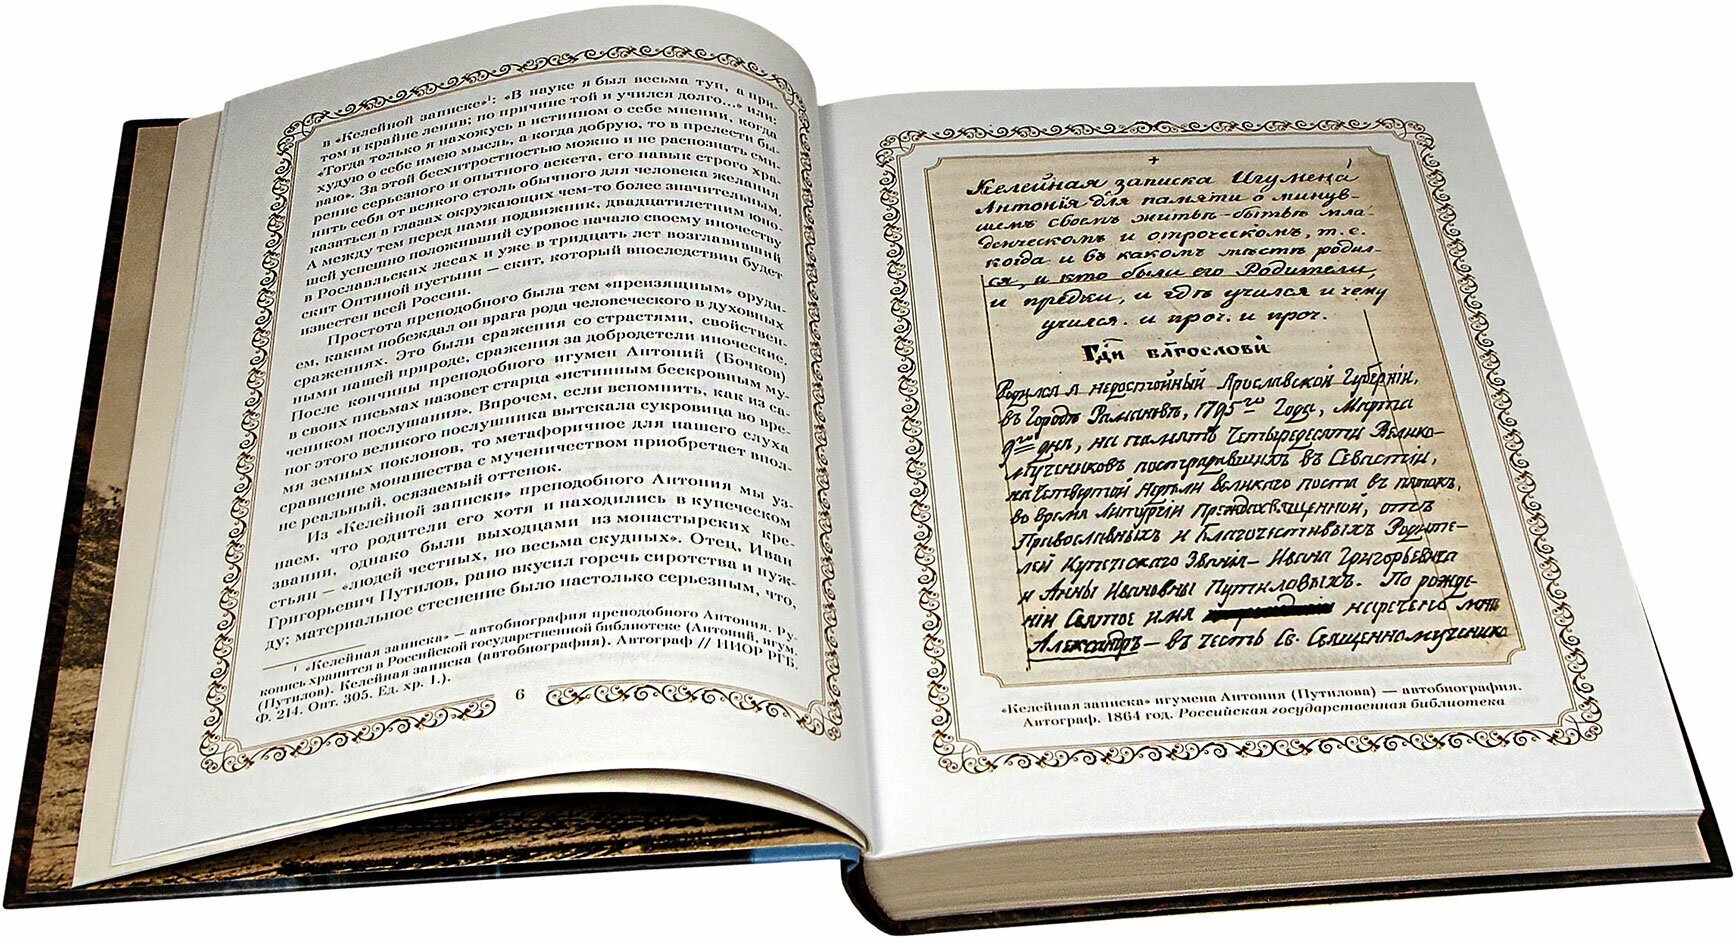 в «Келейной записке»¹: «В науке я был весьма туп, а при-
том и крайне ленив; по причине той и учился долго...» или:
«Тогда только я нахожусь в истинном о себе мнении, когда
худую о себе имею мысль, а когда добрую, то в прелести бы-
ваю». За этой бесхитростностью можно и не распознать сми-
рение серьезного и опытного аскета, его навык строго хра-
нить себя от всякого столь обычного для человека желания
казаться в глазах окружающих чем-то более значительным.
А между тем перед нами подвижник, двадцатилетним юно-
шей успешно положивший суровое начало своему иночеству
в Рославльских лесах и уже в тридцать лет возглавивший
скит Оптиной пустыни — скит, который впоследствии будет
известен всей России.
Простота преподобного была тем «преизящным» оруди-
ем, каким побеждал он врага рода человеческого в духовных
сражениях. Это были сражения со страстями, свойствен-
ными нашей природе, сражения за добродетели иноческие.
После кончины преподобного игумен Антоний (Бочков)
в своих письмах назовет старца «истинным бескровным му-
чеником послушания». Впрочем, если вспомнить, как из са-
пог этого великого послушника вытекала сукровица во вре-
мя земных поклонов, то метафоричное для нашего слуха
сравнение монашества с мученичеством приобретает впол-
не реальный, осязаемый оттенок.
Из «Келейной записки» преподобного Антония мы уз-
наем, что родители его хотя и находились в купеческом
звании, однако были выходцами из монастырских кре-
стьян — «людей честных, но весьма скудных». Отец, Иван
Григорьевич Путилов, рано вкусил горечь сиротства и нуж-
ду; материальное стеснение было настолько серьезным, что,
¹ «Келейная записка» — автобиография преподобного Антония. Ру-
копись хранится в Российской государственной библиотеке (Антоний, игум.
(Путилов). Келейная записка (автобиография). Автограф // НИОР РГБ.
Ф. 214. Опт. 305. Ед. хр. 1.).
6
1
Келейная записка Игумена
Антонія для памяти о минув-
шемъ своемъ житьѣ-бытьѣ мла-
денческомъ и отроческомъ, т. е.
когда и въ какомъ мѣстѣ родил-
ся, и кто были его Родители,
и предки, и гдѣ учился и чему
учился. и проч. и проч.
Гд҃и бл҃гослови
Родился я недостойный Ярославской Губерніи,
въ Городѣ Романовѣ, 1795го Года, Марта
9го дня, на память Четыредесяти Велико-
мучениковъ пострадавшихъ въ Севастіи,
на Четвертой Недѣли великаго поста въ пятокъ,
во время Литургіи Преждеосвященной, отъ
Православныхъ и Благочестивыхъ Родите-
лей Купеческаго Званія — Ивана Григорьевича
и Анны Ивановны Путиловыхъ. По рожде-
ніи Святое имя наречено мнѣ
Александръ — въ честь Св. Священномученика
«Келейная записка» игумена Антония (Путилова) — автобиография.
Автограф. 1864 год. Российская государственная библиотека